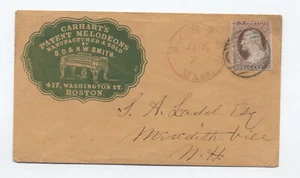 CARHART'S
PATENT MELODEONS
MANUFACTURED & SOLD
BY
S.D. & H.W. SMITH.
417, WASHINGTON ST.
BOSTON.
MASS
S. A. Ladd Esq
Meredith Vill
N.H.